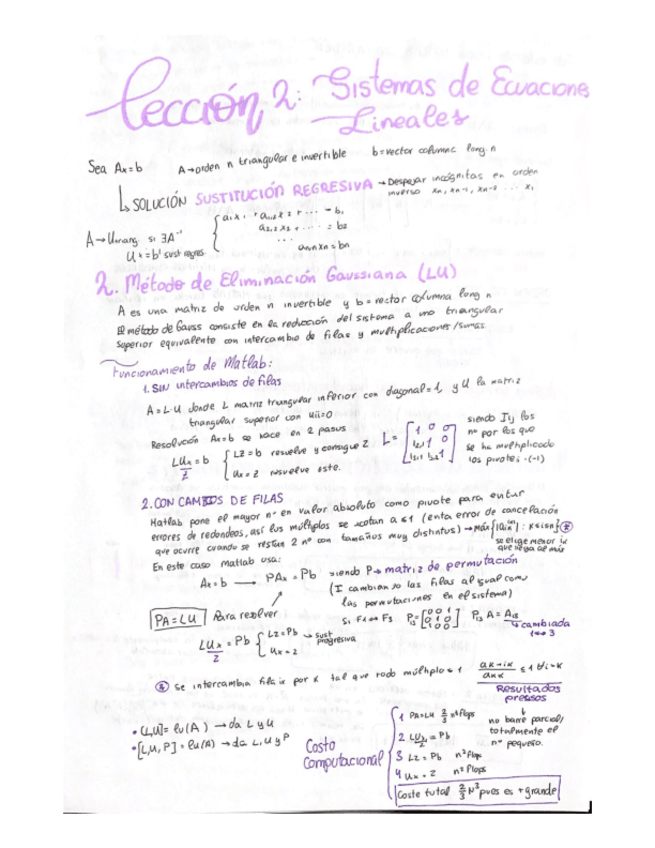 Lección 2: Sistemas de Ecuaciones
Lineales
Sea Ax=b A→orden n triangular e invertible b=vector columna long. n
↳ SOLUCIÓN SUSTITUCIÓN REGRESIVA → Despejar incógnitas en orden
inverso xn, xn-1, xn-2 ... x1
A→Utriang. si ∃A⁻¹
Ux=b' sust regres.
... = b2
...
annxn = bn
2. Método de Eliminación Gaussiana (LU)
A es una matriz de orden n invertible y b = vector columna long n
El método de Gauss consiste en la reducción del sistema a uno triangular
superior equivalente con intercambio de filas y multiplicaciones/sumas.
Funcionamiento de Matlab:
1. SIN intercambios de filas
A=L·U donde L matriz triangular inferior con diagonal=1, y U la matriz
triangular superior con
Resolución Ax=b se hace en 2 pasos
LUx = b { Lz=b resuelve y consigue z
z
Ux=z resuelve este.
L=
siendo los
nº por los que
se ha multiplicado
los pivotes ·(-1)
2. CON CAMBIOS DE FILAS
Matlab pone el mayor nº en valor absoluto como pivote para evitar
errores de redondeos, así los múltiplos se acotan a ≤1 (evita error de cancelación
que ocurre cuando se restan 2 nº con tamaños muy distintos) → máx
se elige menor
En este caso Matlab usa:
Ax=b → PAx=Pb siendo P→ matriz de permutación
(I cambiando las filas al igual como
las permutaciones en el sistema)
PA=LU Para resolver
Si F1↔F3 P13= [0 0 1 0 1 0 P13 A = A13
↳ cambiada
1↔3
LUx = Pb { Lz=Pb → sust
progresiva
z
Ux=z
⊛ Se intercambia fila i por k tal que todo múltiplo ≤ 1
Resultados
• [L,U]= lu(A) → da L y U
• [L,U,P] = lu(A) → da L, U y P
Costo
Computacional
1 PA=LU 2/3 n³ flops
2 LUx = Pb
z
3 Lz=Pb n² flops
4 Ux=z n² flops
no barre parcial/
totalmente el
nº pequeño.
Coste total 2/3 N³ pues es + grande